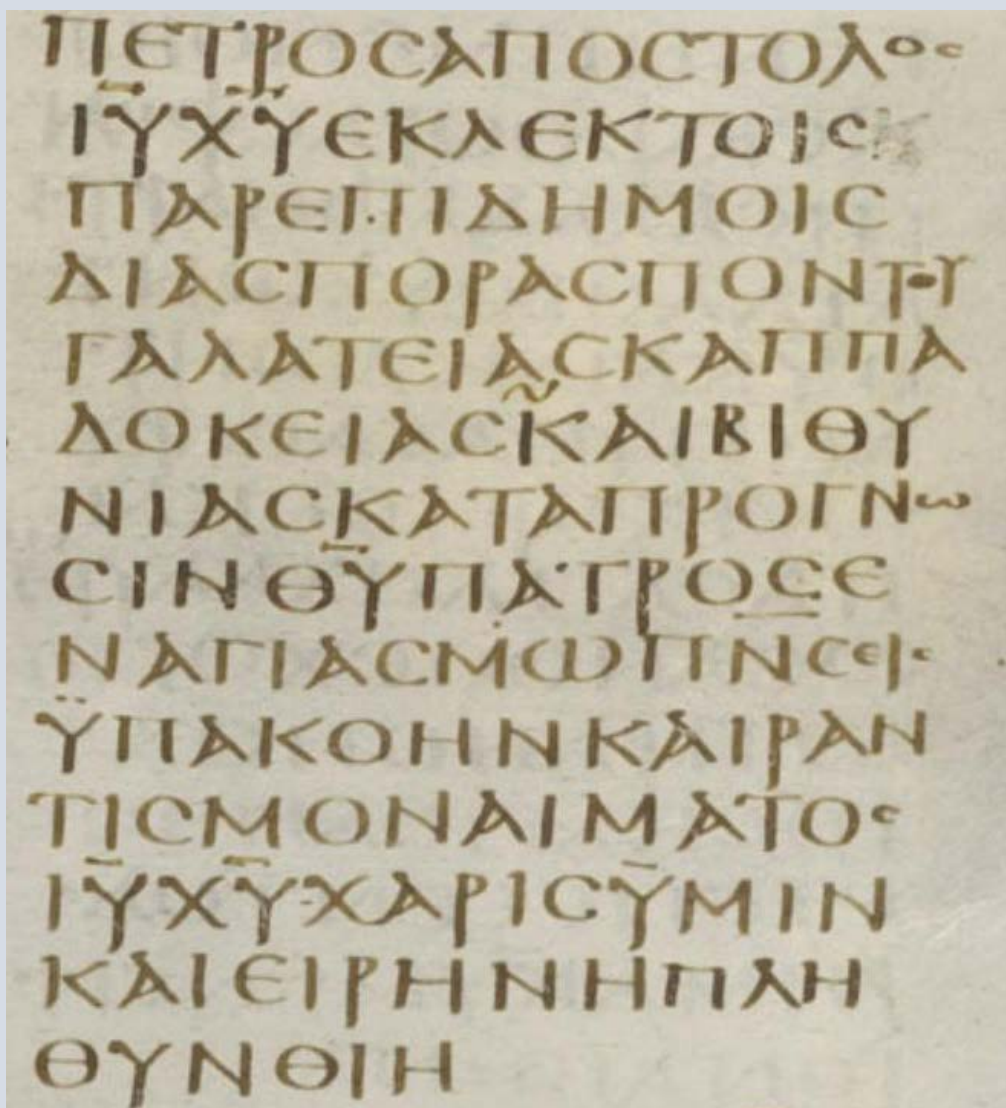 ΠΕΤΡΟϹΑΠΟϹΤΟΛΟϹ
ΙΥ̅ΧΥ̅ΕΚΛΕΚΤΟΙϹ
ΠΑΡΕΠΙΔΗΜΟΙϹ
ΔΙΑϹΠΟΡΑϹΠΟΝΤΟΥ
ΓΑΛΑΤΕΙΑϹΚΑΠΠΑ
ΔΟΚΕΙΑϹΚΑΙΒΙΘΥ
ΝΙΑϹΚΑΤΑΠΡΟΓΝΩ
ϹΙΝΘΥ̅ΠΑΤΡΟϹΕ
ΝΑΓΙΑϹΜΩΠΝ̅Ϲ̅ΕΙϹ
ΫΠΑΚΟΗΝΚΑΙΡΑΝ
ΤΙϹΜΟΝΑΙΜΑΤΟϹ
ΙΥ̅ΧΥ̅·ΧΑΡΙϹΥ̅ΜΙΝ
ΚΑΙΕΙΡΗΝΗΠΛΗ
ΘΥΝΘΙΗ